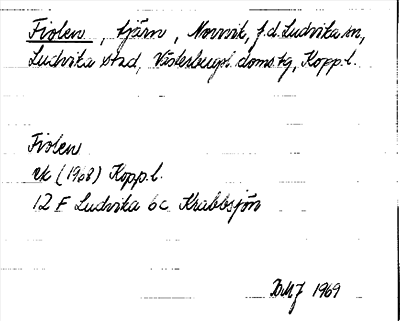 Fiolen, tjärn, Norrvik, f.d. Ludvika sn,
Ludvika stad, Västerbergsl. doms.hg, Kopp.l.
Fiolen
ek (1968) Kopp.l.
12 F Ludvika 6c Krabbsjön
BMJ 1969